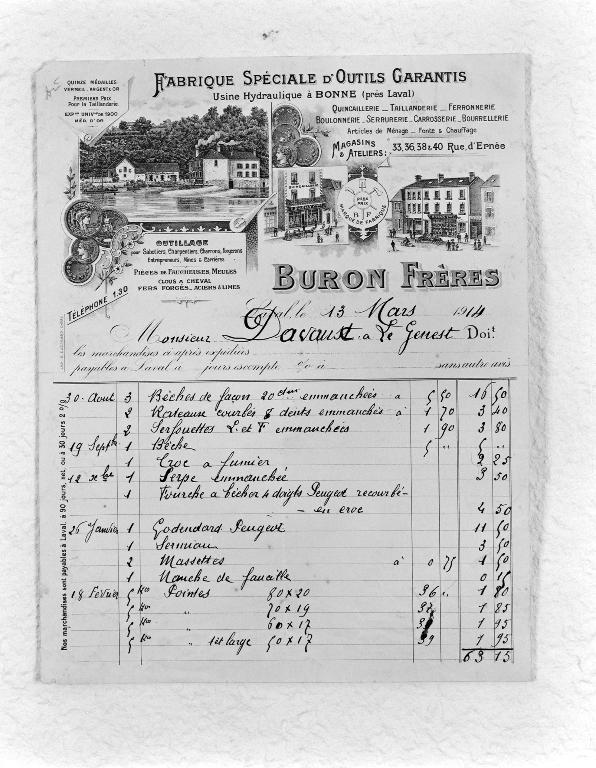 QUINZE MÉDAILLES
VERMEIL, ARGENT & OR
PREMIERS PRIX
Pour la Taillanderie
EXP^on UNIV^lle DE 1900
MÉD. D'OR
FABRIQUE SPÉCIALE D'OUTILS GARANTIS
Usine Hydraulique à BONNE (près Laval)
QUINCAILLERIE _ TAILLANDERIE _ FERRONNERIE
BOULONNERIE _ SERRURERIE _ CARROSSERIE _ BOURRELLERIE
Articles de Ménage _ Fonte & Chauffage
MAGASINS & ATELIERS: 33, 36, 38 & 40 Rue d'Ernée
MARQUE DE FABRIQUE
B F
OUTILLAGE
pour Sabotiers, Charpentiers, Charrons, Tonneliers
Entrepreneurs, Mines & Carrières
PIÈCES DE FAUCHEUSES, MEULES
CLOUS A CHEVAL
FERS FORGÉS, ACIERS & LIMES
TÉLÉPHONE 1.30
BURON FRÈRES
Laval, le 13 Mars 1914
Monsieur Davaust à Le Genest Doit
les marchandises ci-après expédiées
payables à Laval à jours escompte % à sans autre avis
Nos marchandises sont payables à Laval à 90 jours, net, ou à 30 jours 2 %
30 Aout 3 Bêches de façon 20 c^m emmanchées à 5 50 16 50
2 Rateaux courbés 8 dents emmanchés à 1 70 3 40
2 Serfouettes L et F emmanchées 1 90 3 80
19 Sept^bre 1 Bêche 5 " 5 "
1 Croc a fumier 2 25
12 X^bre 1 Serpe emmanchée 3 50
1 Fourche a bêcher 4 doigts Peugeot recourbé-
- en croc 4 50
26 Janvier 1 Godendard Peugeot 11 50
1 3 50
2 Massettes à 0 75 1 50
1 Manche de faucille 0 15
18 Février 5 K^os Pointes 80 x 20 36 " 1 80
5 K^os " 70 x 19 37 1 85
5 K^os " 60 x 17 1 95
5 K^os " tet large 50 x 17 39 1 95
63 15